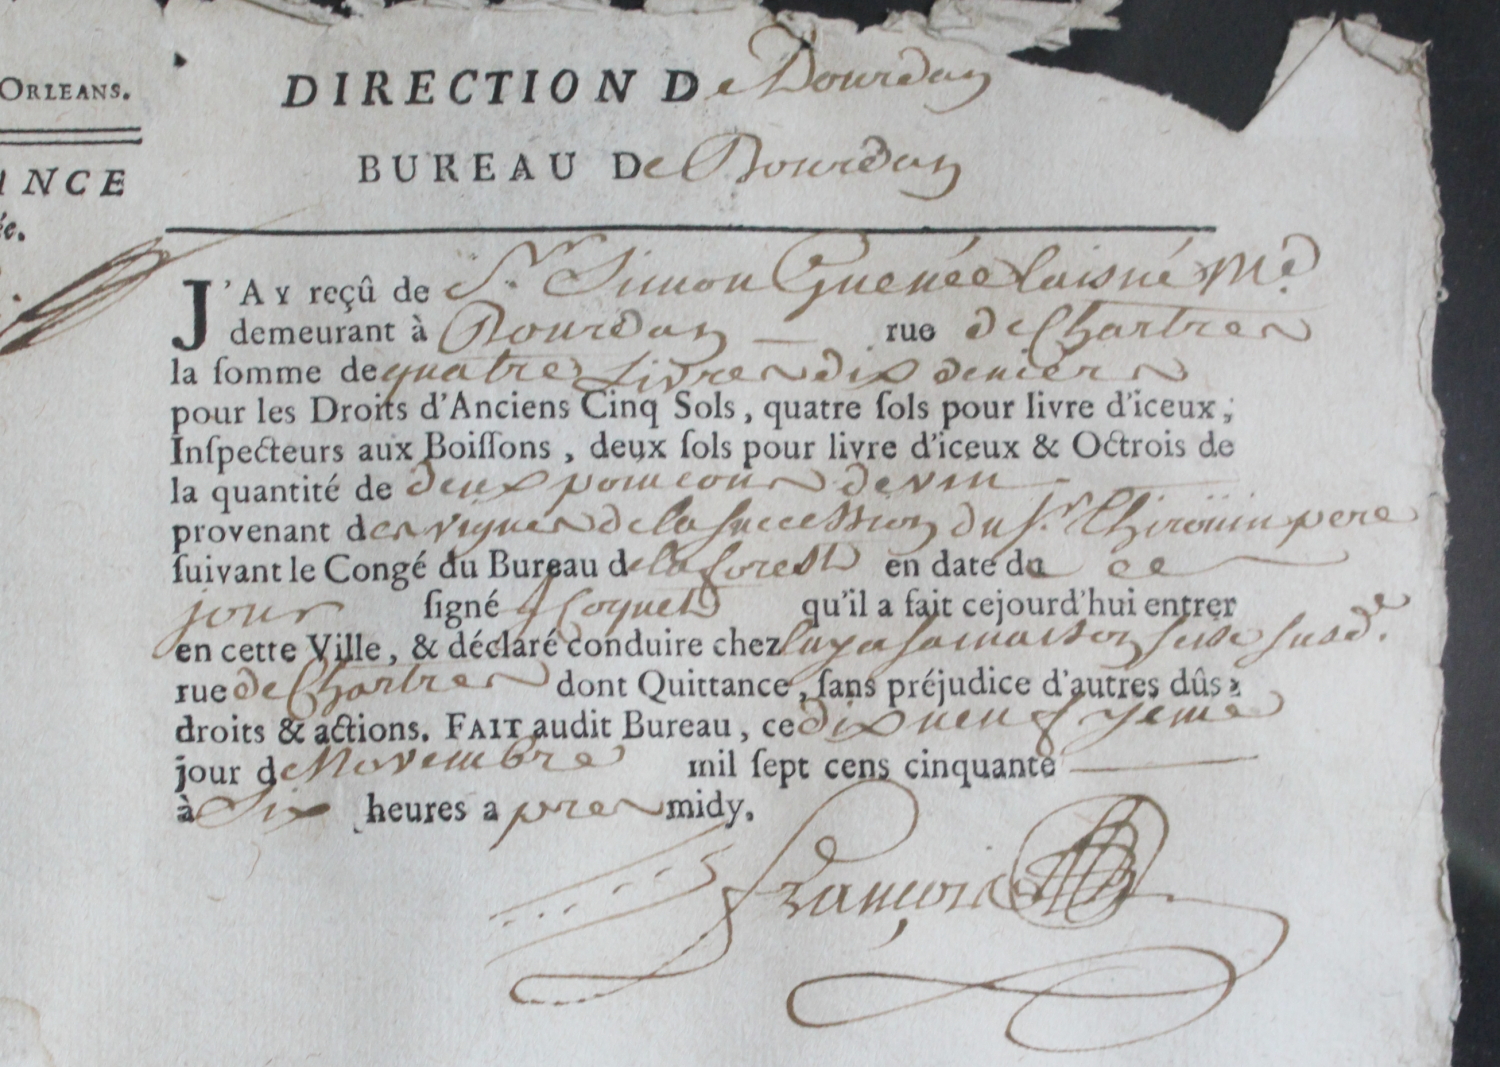 ORLEANS.
NCE
DIRECTION De Dourdan
BUREAU De Dourdan
J'AY reçû de Sr. Simon Guenée laisné Md.
demeurant à Dourdan rue de Chartres
la somme de quatre Livres dix deniers
pour les Droits d'Anciens Cinq Sols, quatre sols pour livre d'iceux,
Inspecteurs aux Boissons, deux sols pour livre d'iceux & Octrois de
la quantité de deux poincons de vin
provenant des vignes de la succession du Sr. Thiroüin pere
suivant le Congé du Bureau de la forest en date du ce
jour signé Coquet qu'il a fait cejourd'hui entrer
en cette Ville, & déclaré conduire chez luy a sa maison sise susde.
rue de Chartres dont Quittance, sans préjudice d'autres dûs,
droits & actions. FAIT audit Bureau, ce dix neufyeme
jour de Novembre mil sept cens cinquante
à Six heures apres midy.
François